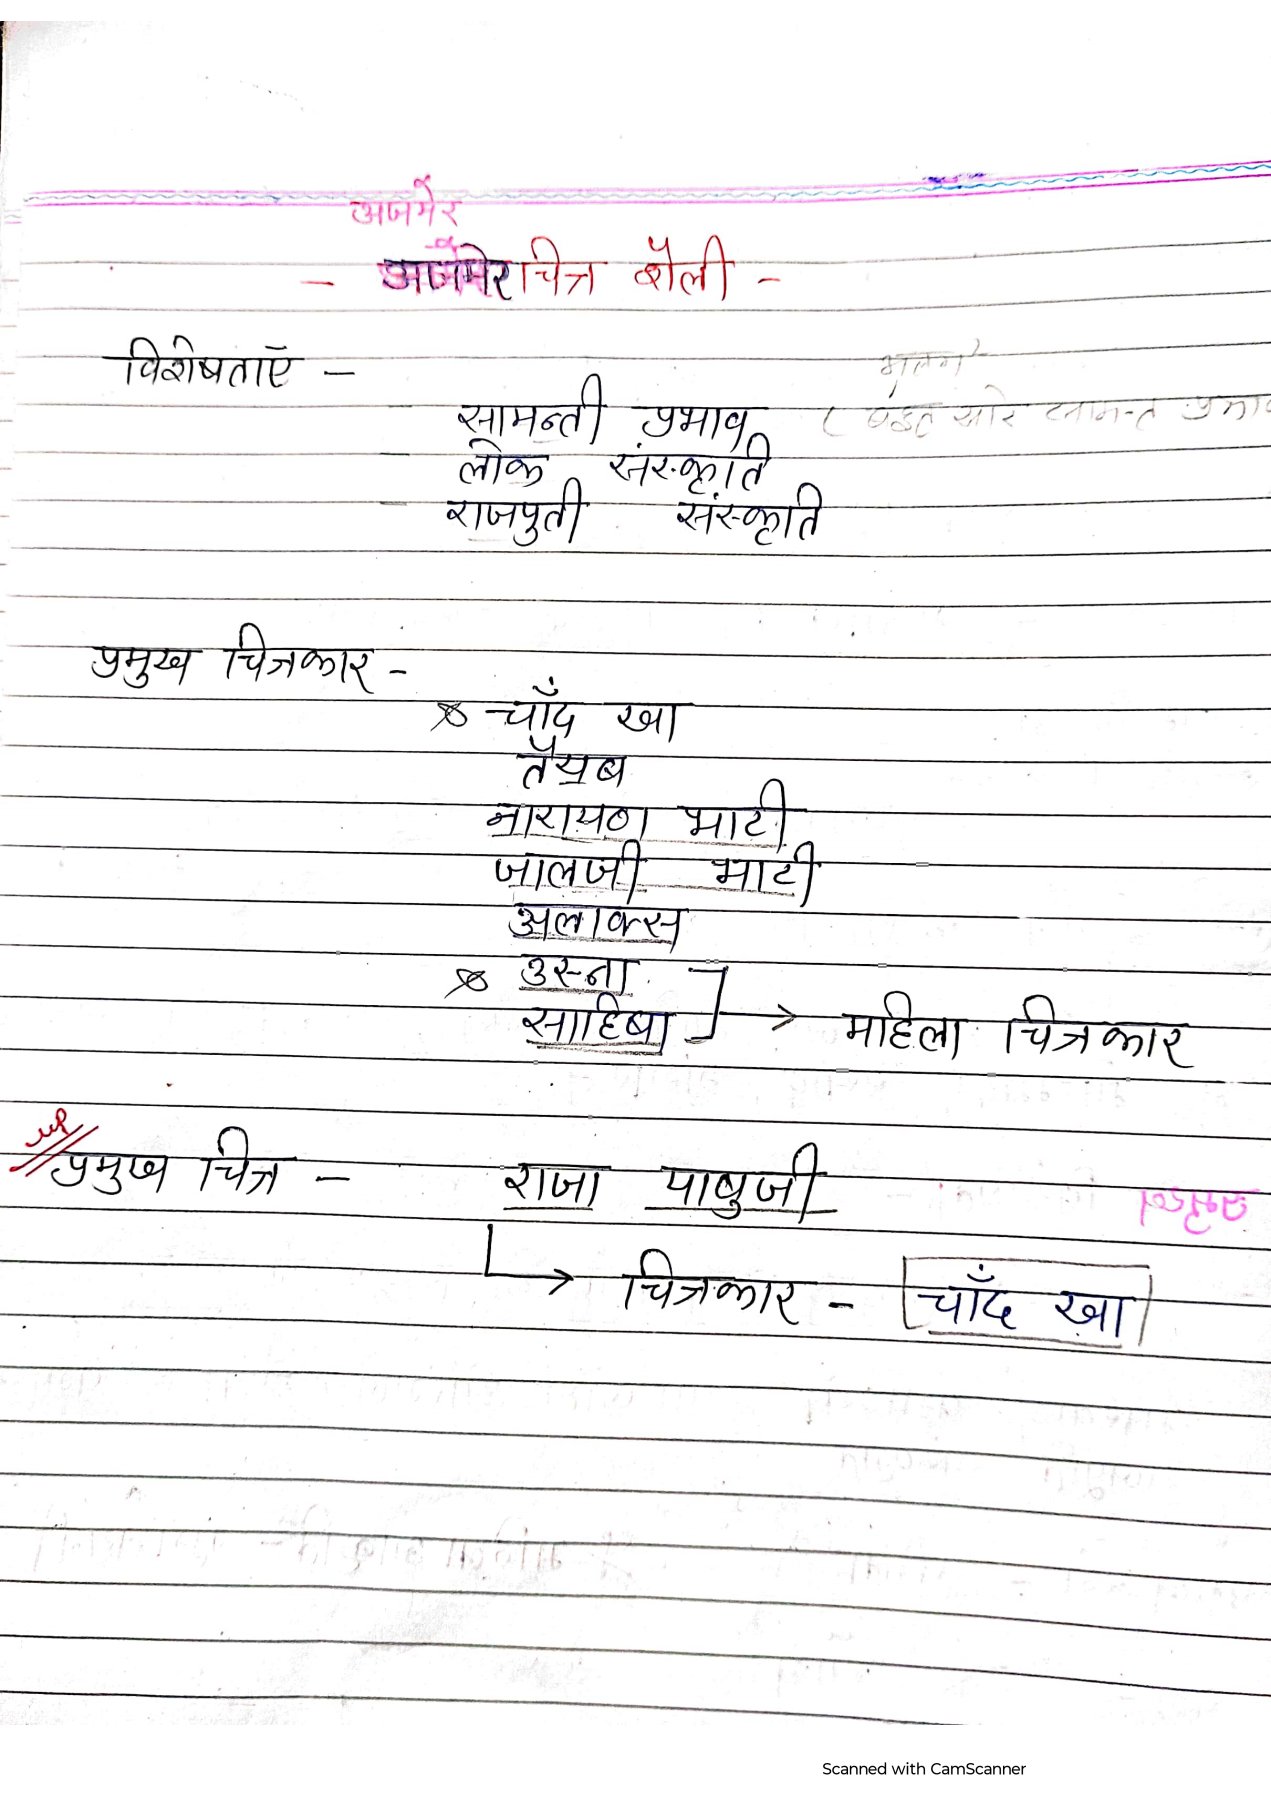 अजमेर
- अजमेर चित्र शैली -
विशेषताएँ -
सामन्ती प्रभाव
लोक संस्कृति
राजपुती संस्कृति
प्रमुख चित्रकार -
चाँद खा
तैय्यब
नारायण भाटी
जालजी भाटी
अलाबक्स
उस्ना
साहिबा → महिला चित्रकार
प्रमुख चित्र - राजा पाबुजी
→ चित्रकार - चाँद खा
Scanned with CamScanner